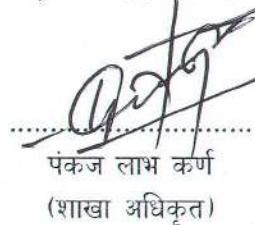 पंकज लाभ कर्ण
(शाखा अधिकृत)